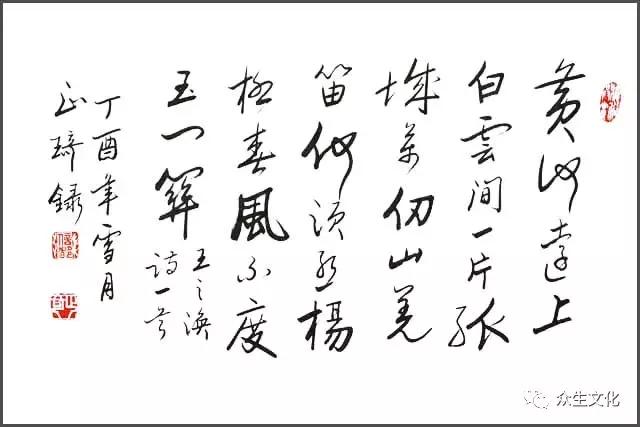 黄河遠上
白雲间一片孤
城萬仞山羌
笛何须怨楊
柳春風不度
玉门関
王之渙
诗一首
丁酉年雪月
正琦録
众生文化